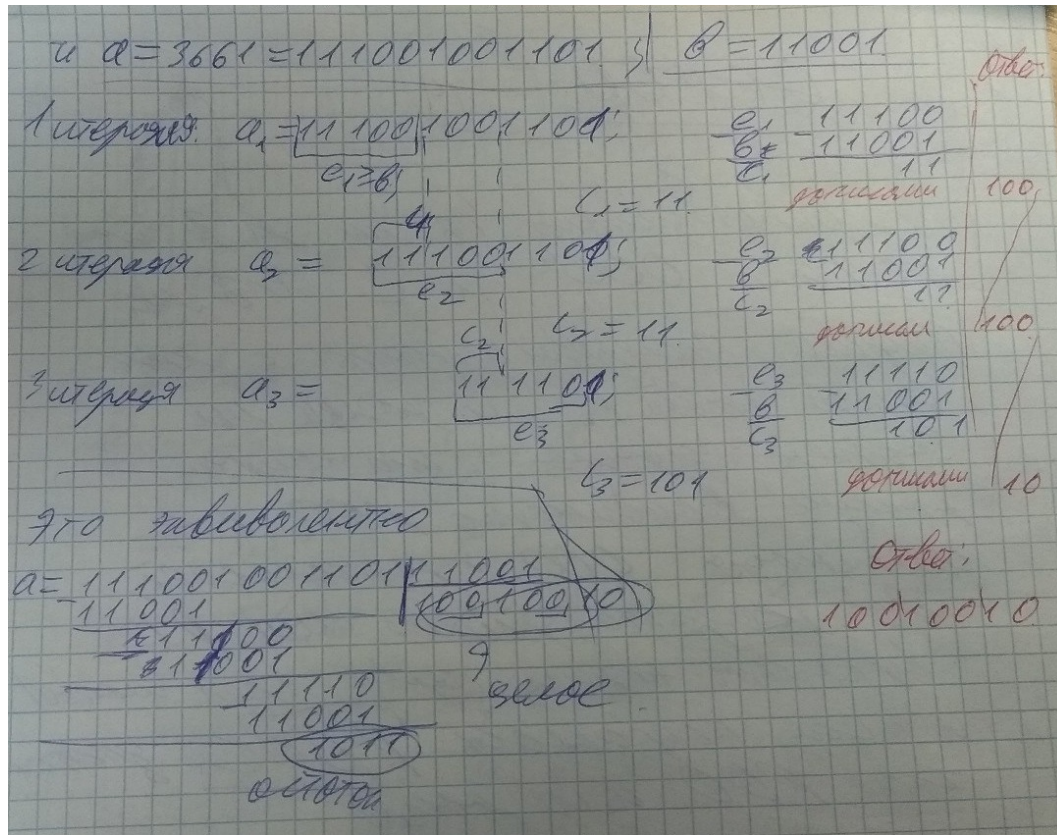 и a = 3661 = 111001001101; b = 11001.
Ответ
1 итерация: a₁ = 111001001101;
e₁ ≥ b;
e₁ 11100
b 11001
c₁ 11
c₁ = 11.
допишем 100
c₁
2 итерация a₂ = 111001101;
e₂
e₂ 11100
b 11001
c₂ 11
c₂ = 11.
допишем 100
c₂
3 итерация a₃ = 111101;
e₃
e₃ 11110
b 11001
c₃ 101
c₃ = 101
допишем 10
Это эквивалентно
a = 111001001101 11001
11001 10010010
11100
11001
целое
11110
11001
1011
остаток
Ответ:
10010010